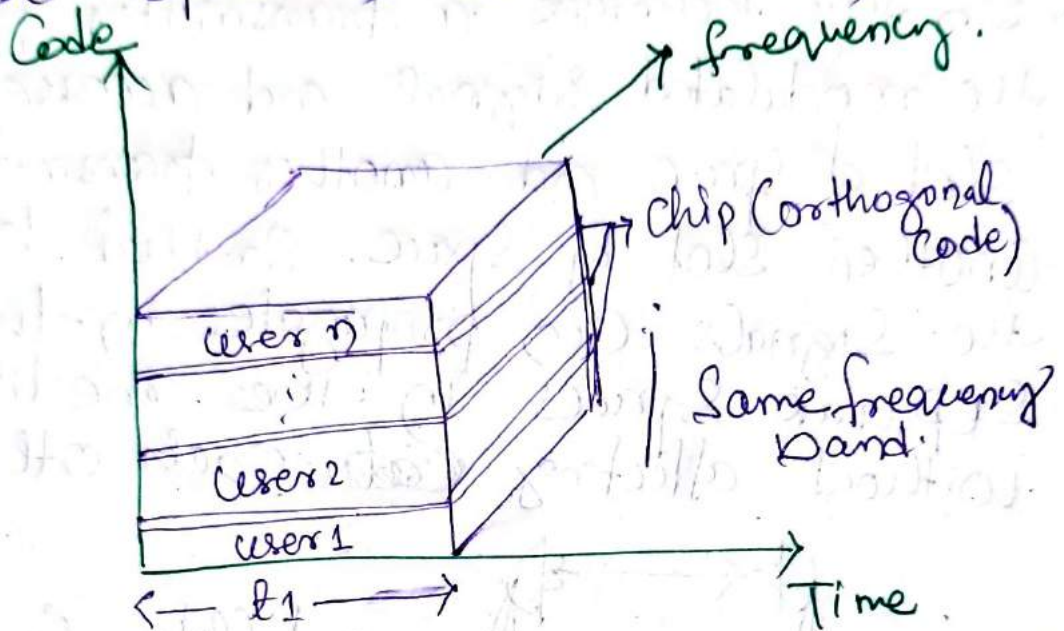 Code
frequency.
Chip (orthogonal
Code)
user n
Same frequency
band.
user 2
user 1
t1
Time